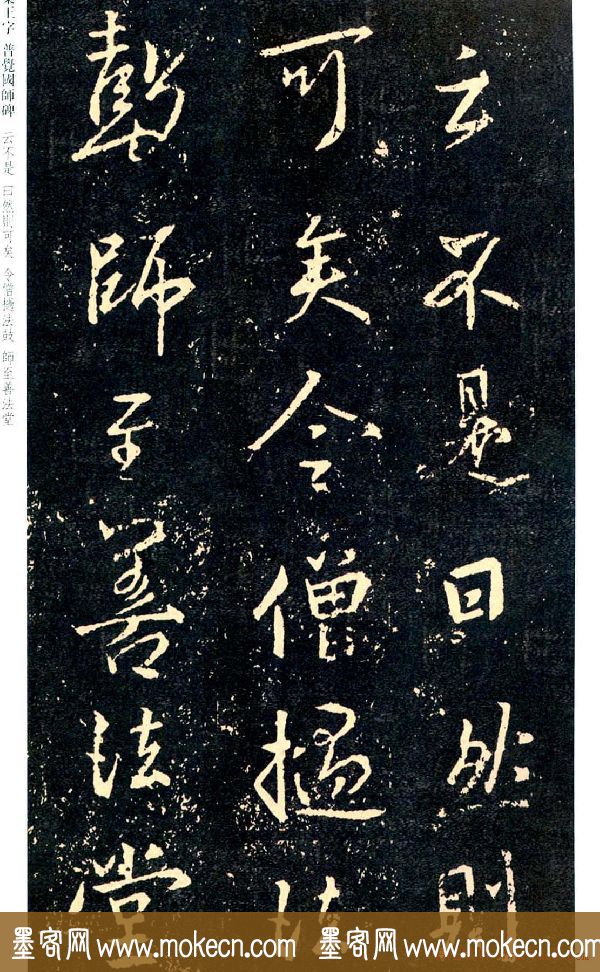 云不是曰然則
可矣令僧撾法
鼓師至善法堂
集王字 普覺國師碑 云不是 曰然則可矣 令僧撾法鼓 師至善法堂
墨客网 www.mokecn.com 墨客网 www.mokecn.com